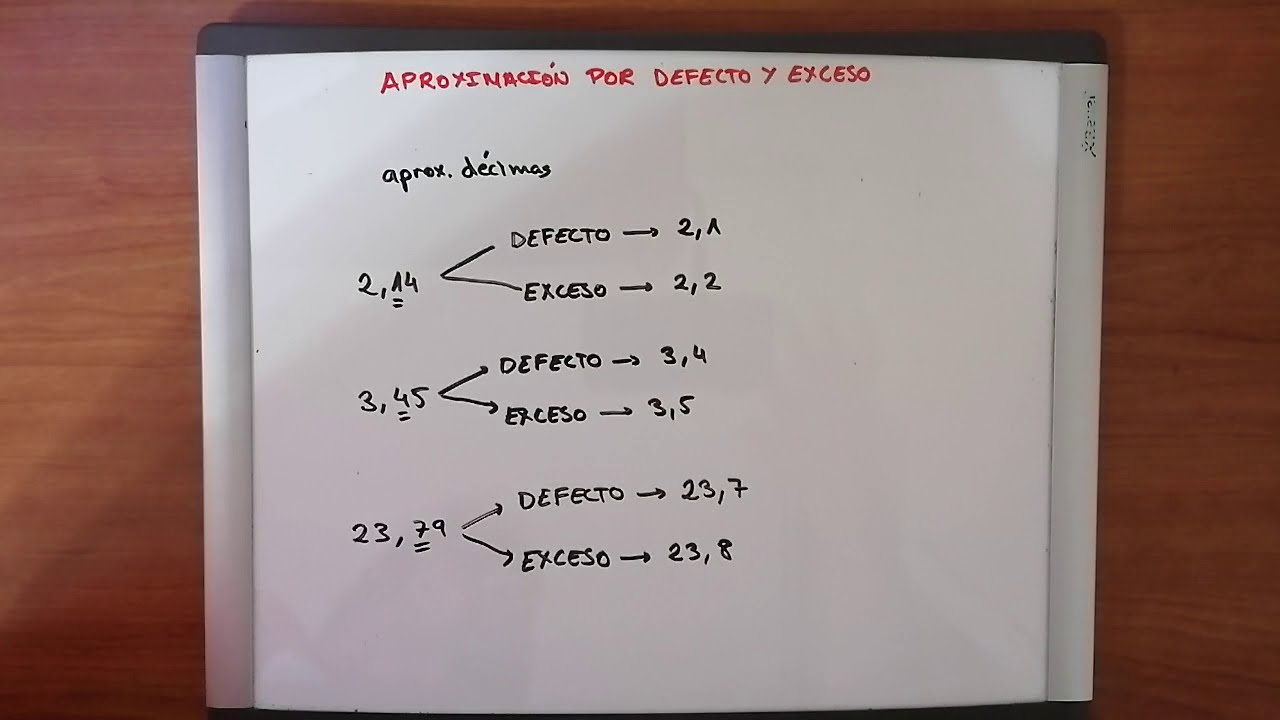 APROXIMACIÓN POR DEFECTO Y EXCESO
aprox. décimas
DEFECTO → 2,1
2,14
EXCESO → 2,2
DEFECTO → 3,4
3,45
EXCESO → 3,5
DEFECTO → 23,7
23,79
EXCESO → 23,8